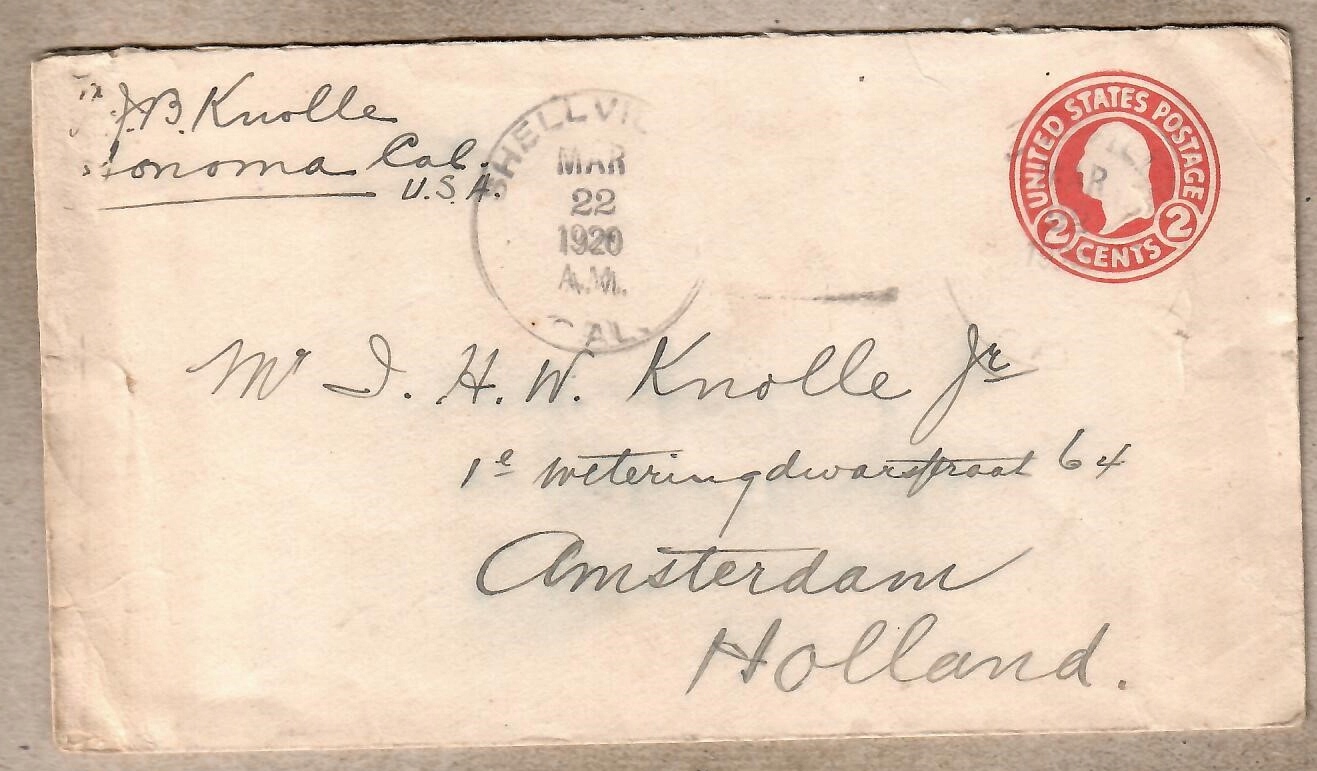 J.B. Knolle
Sonoma Cal.
U.S.A.
SHELLVIL
MAR
22
1920
A.M.
CAL.
UNITED STATES POSTAGE
2 CENTS 2
Mr J. H. W. Knolle Jr
1e Weteringdwarsstraat 64
Amsterdam
Holland.